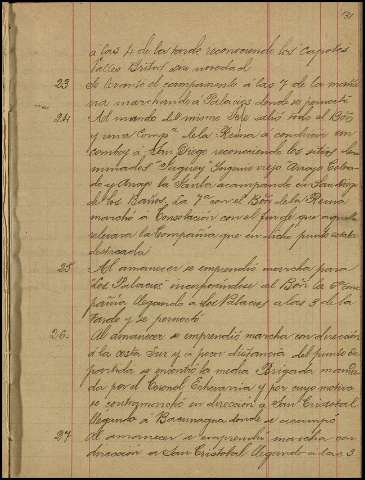 31
a las 4 de la tarde reconociendo los Cayotes
Valles Brital sin novedad
23 Se levantó el campamento á las 7 de la maña
na marchando a Palacios donde se pernoctó
24 Al mando del mismo Jefe salió todo el Bón
y una Compª de la Reina a conducir un
comboy á San Diego reconociendo los sitios deno
minados Juguey Ingenio viejo Arroyo Colora
do y Arroyo la Santa acampando en San Diego
de los Baños. La 7ª con el Bón de la Reina
marchó a Consolación con el fin de que aquella
relevara la Compañia que en dicho punto estaba
destacada
25 Al amanecer se emprendió marcha para
Los Palacios incorporandose al Bón la 6ª Com
pañia llegando a los Palacios a las 3 de la
tarde y se pernoctó
26 Al amanecer se emprendió marcha con dirección
á la costa Sur y á pocar distancia del punto de
partida se encontró la media Brigada manda
da por el Coronel Echevarria y por cuyo motivo
se contramarchó en dirección á San Cristobal
llegando á Bacunagua donde se acampó
27 Al amanecer se emprendió marcha con
dirección a San Cristobal llegando a las 3